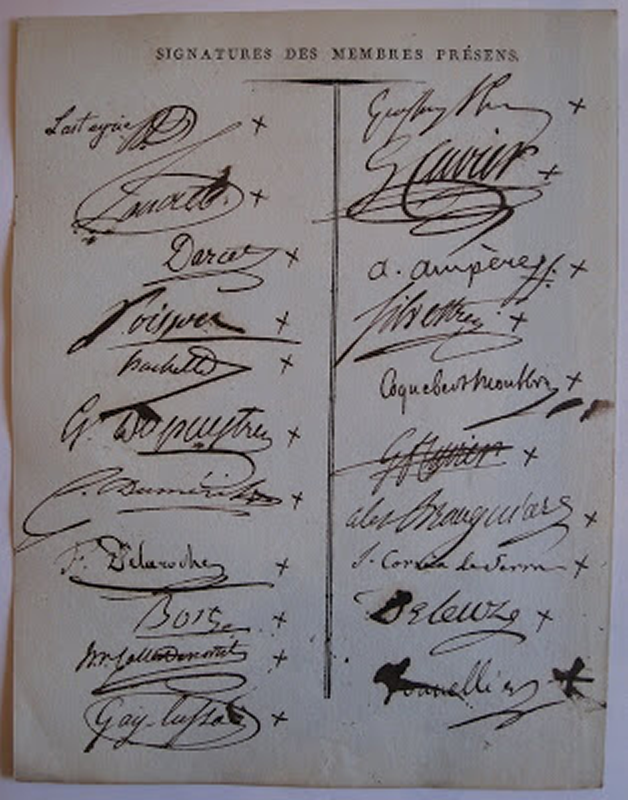 SIGNATURES DES MEMBRES PRÉSENS.
Lasteyrie
Darcet
Poisson
hachette
G. Dupuytren
C. Duméril
F. Delaroche
Bosc
Gay-Lussac
G Cuvier
a. ampère
Silvestre
Coquebert Montbret
alex Brongniart
J. Correa de Serra
Deleuze
Tonnellier